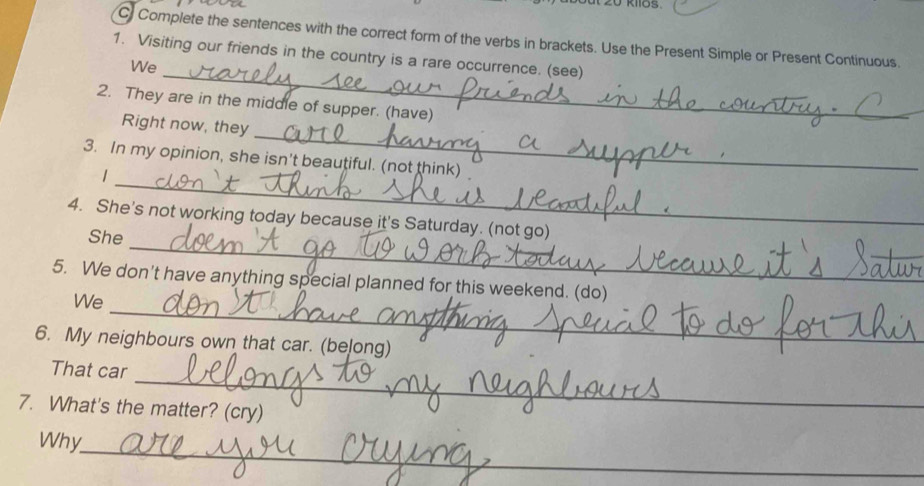 20 kilos.
C Complete the sentences with the correct form of the verbs in brackets. Use the Present Simple or Present Continuous.
1. Visiting our friends in the country is a rare occurrence. (see)
We rarely see our friends in the country.
2. They are in the middle of supper. (have)
Right now, they are having a supper.
3. In my opinion, she isn't beautiful. (not think)
I don't think she is beautiful.
4. She's not working today because it's Saturday. (not go)
She doesn't go to work today because it's Satur
5. We don't have anything special planned for this weekend. (do)
We don't have anything special to do for this
6. My neighbours own that car. (belong)
That car belongs to my neighbours
7. What's the matter? (cry)
Why are you crying